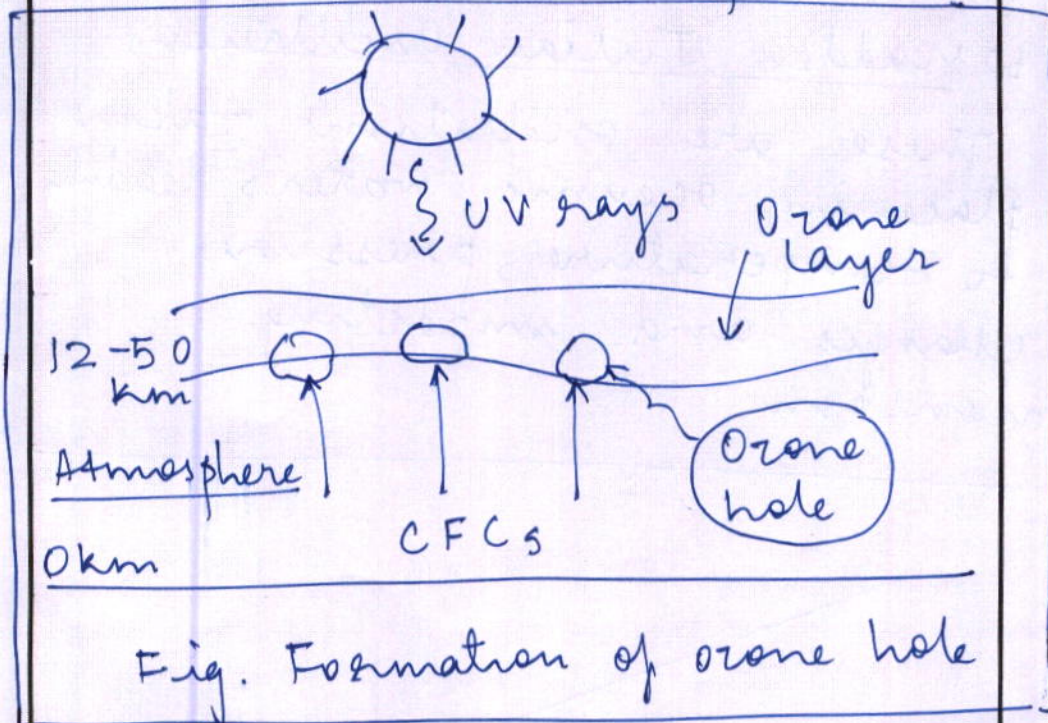 UV rays
Ozone
layer
12-50
km
Atmosphere
Ozone
hole
CFCs
0km
Fig. Formation of ozone hole